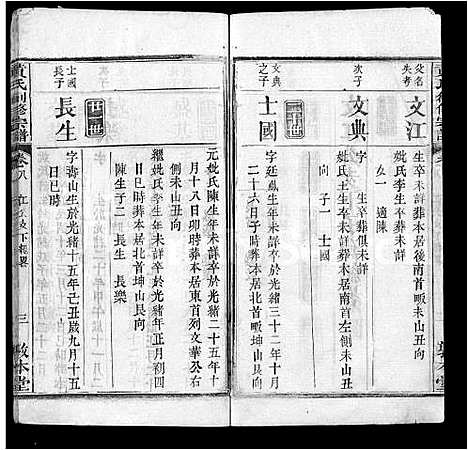 父名
失考
文江
生卒未詳葬本居後南首畈未山丑向
妣氏李生卒未詳葬本居北首畈未山丑向
女一 適陳
次子
文典
字 生卒葬俱未詳
妣氏 生卒未詳葬本居
向 子一 士國
廿世
文典
之子
士國
字 生年未詳卒於光緒三十二年十月
二十六日子時葬本居北首畈坤山艮向
元妣氏陳生年未詳卒於光緒二十五年十
月十八日卯時葬本居東首列文華公右
側未山丑向
繼妣氏李生年未詳卒於光緒年正月初
四日巳時葬本居北首畈坤山艮向
陳生子二 長生 長樂
廿一世
士國
長子
長生
字壽山生於光緒十五年己丑歲九月十五
日巳時
黃氏創修宗譜
卷八
三
敦本堂